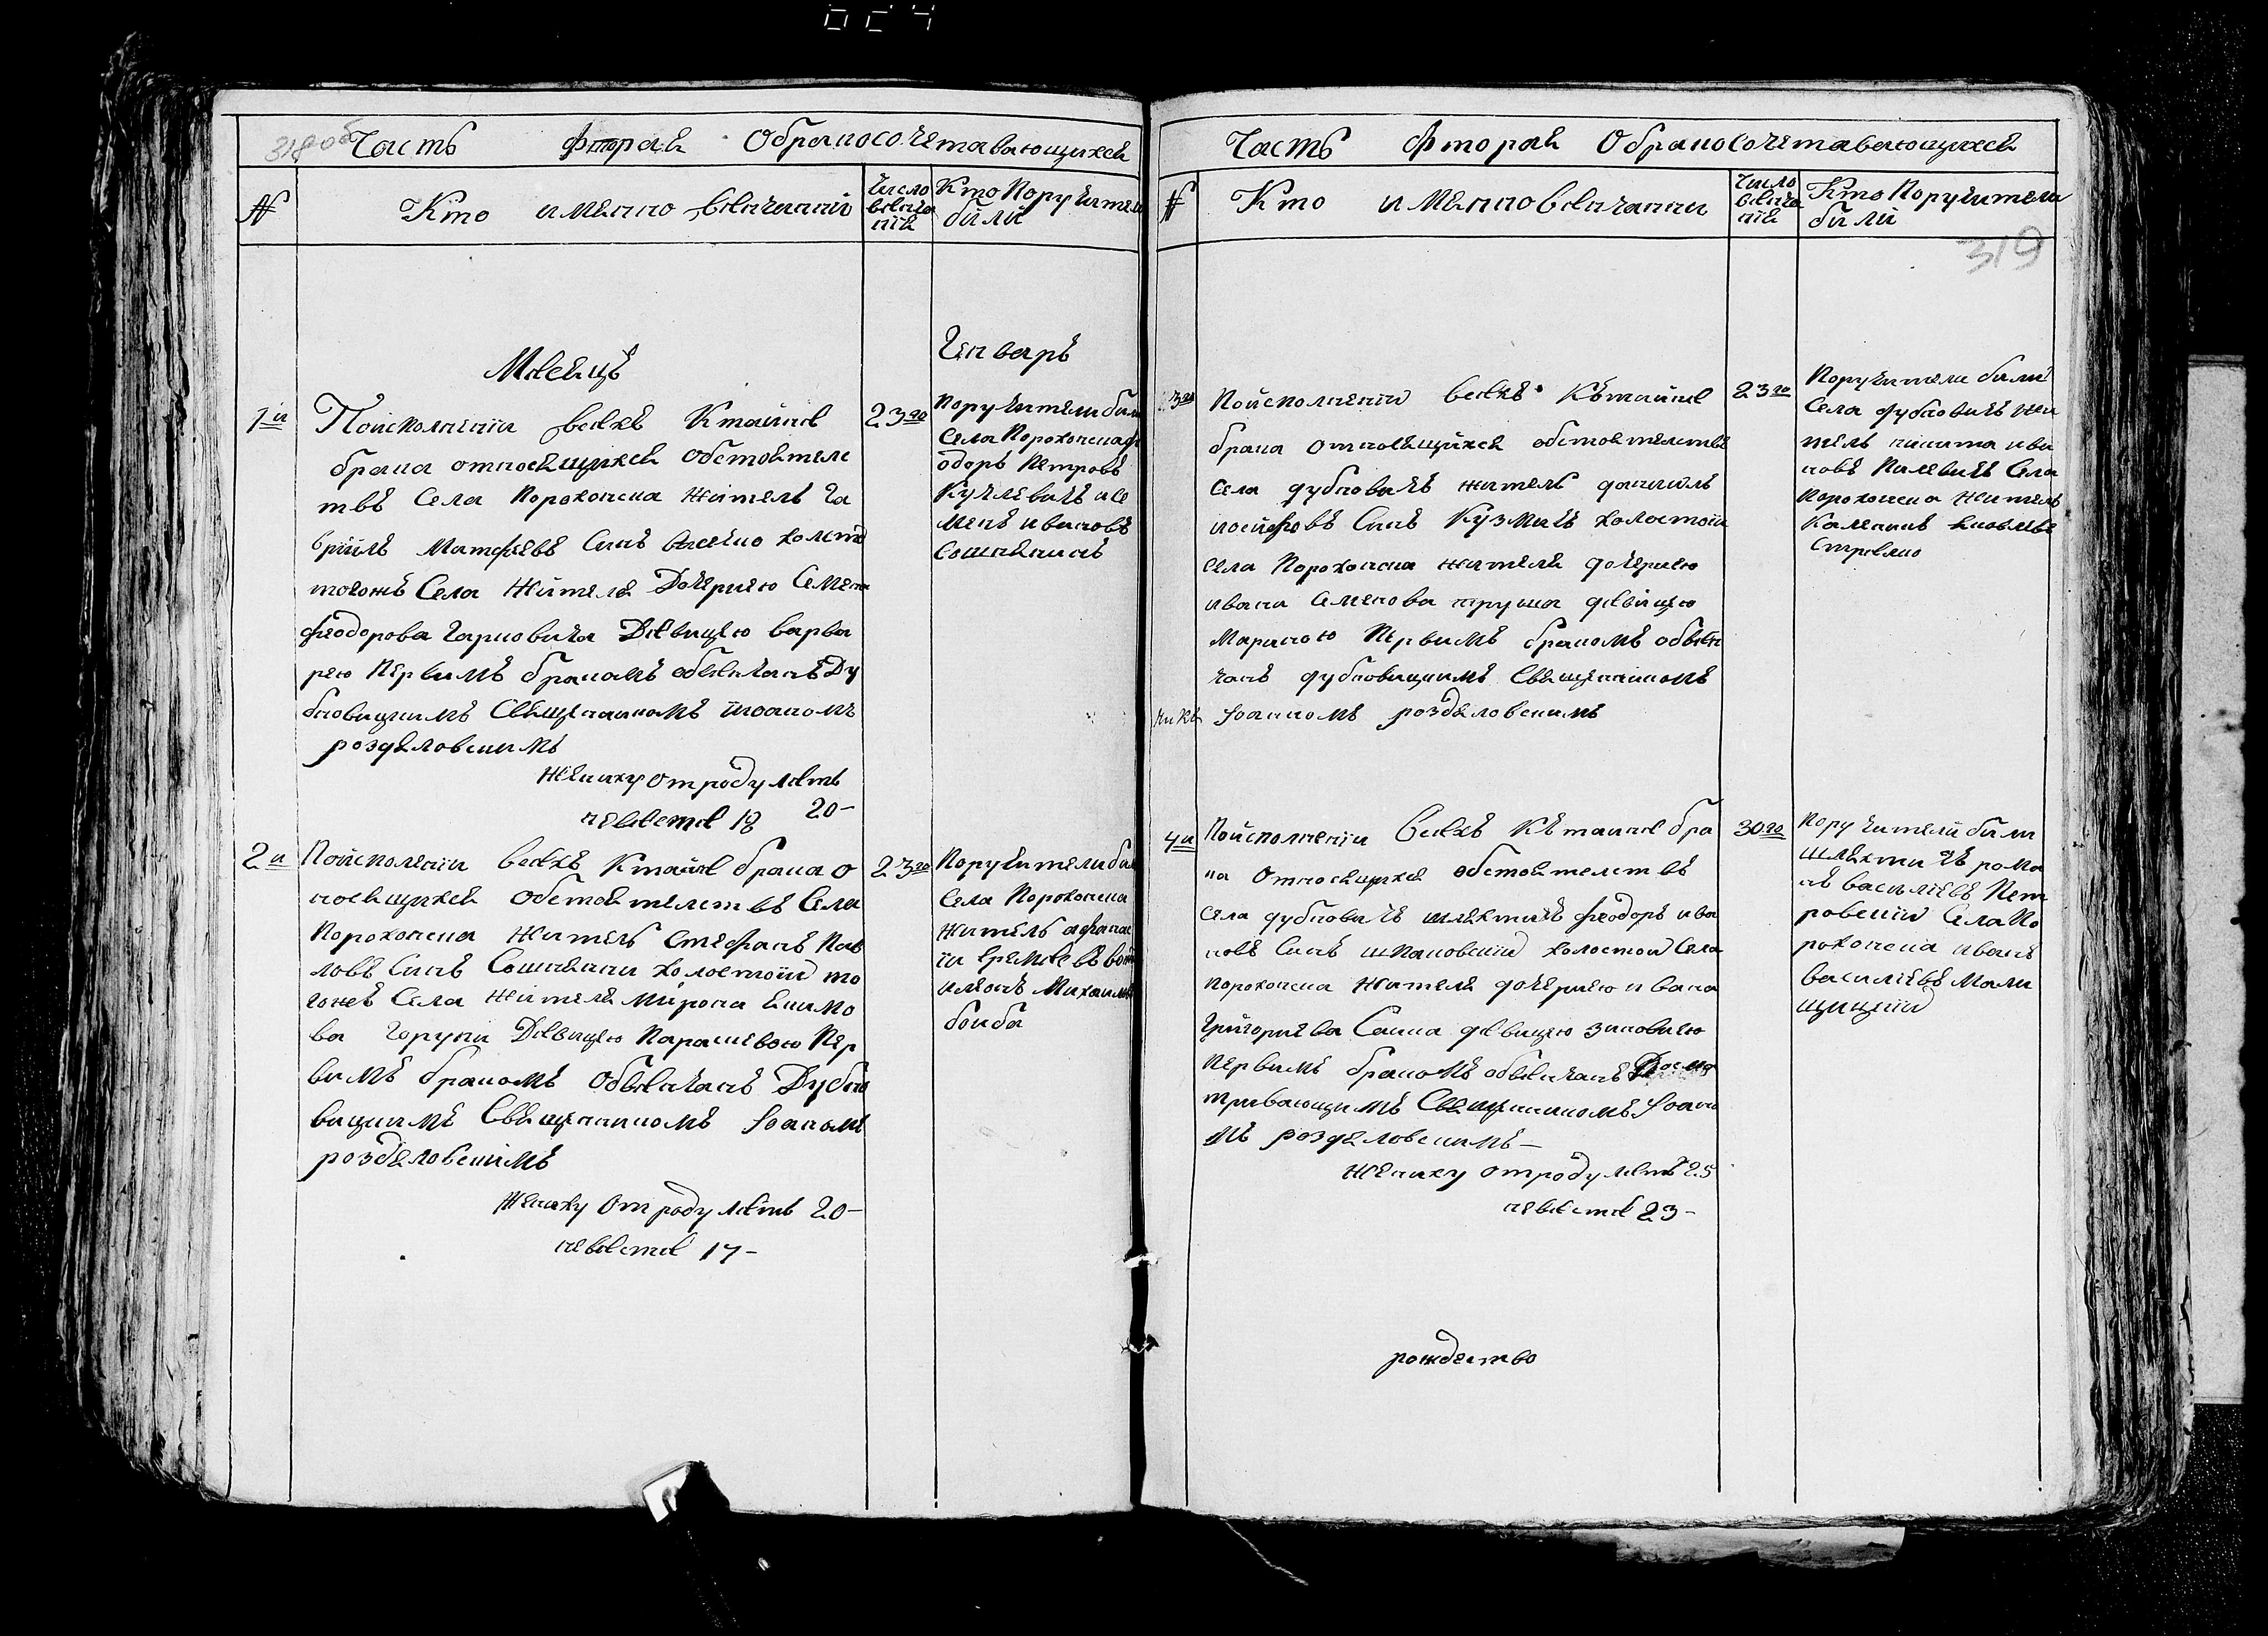 318 об
Часть фторая Обракосочетавающихся
№
Кто именно венчании
Число венчания
Кто Поручители били
Месяцъ
Генваръ
1й
Поисполнении всехъ Ктайне
брака относящихся обстоятелс
твъ Села Порохонска Житель Га
вриилъ Матфеевъ Синъ
тогожъ Села Жителя Дочернею Семена
феодорова Гарковича Девицею варва
рею Первимъ бракомъ обвенчанъ Ду
бновицкимъ Священникомъ Иоаномъ
роздяловскимъ
Жениху от роду летъ 20-
невесте 18
23го
Поручители били
Села Порохонска фе
одоръ Петровъ
и Се
менъ ивановъ
Сошнянинъ
2й
Поисполнении всехъ Ктайне брака о
носящихся обстоятелствъ Села
Порохонска Житель Стефанъ Пав
ловъ Синъ Сошнянин холостой то
гожъ Села Жителя Мирона Екимо
ва Девицею Параскевою Пер
вимъ бракомъ Обвенчанъ Дубно
вицкимъ Священникомъ Иоаномъ
роздяловскимъ
Жениху от роду летъ 20-
невесте 17-
23го
Поручители били
Села Порохонска
Житель афанас
ий
Михаиловъ
боиба
Часть фторая Обракосочетавающихся
№
Кто именно венчании
Число венчания
Кто Поручители били
319
3го
Поисполнении всехъ Кътайне
брака относящихся обстоятелствъ
Села дубновичъ житель даниилъ
иосифовъ Синъ Кузмичъ холостои
села Порохонска жителя дочернею
ивана Семенова девицею
Мариною Первимъ бракомъ обвен
чанъ дубновицкимъ Священникомъ
Иоанномъ роздяловскимъ
23го
Поручители били
Села дубновичъ жи
тель никита ива
новъ Палевичъ Села
Порохонска Житель
яковлевъ
4й
Поисполнении Всехъ Кътаине бра
ка Относящихся обстоятелствъ
Села дубновичъ шляхтичъ феодоръ ива
новъ Синъ шпаковский холостои Села
порохонска Жителя дочернею ивана
Григориева девицею зиновиею
Первимъ бракомъ обвенчанъ Досмо
тривающимъ Священникомъ Иоано
мъ роздяловскимъ-
Жениху от роду летъ 25
невесте 23-
30го
Поручители били
шляхтичъ рома
нъ василиевъ Пет
ровский Села По
рохонска иванъ
василиевъ Мали
щицкий
рождество